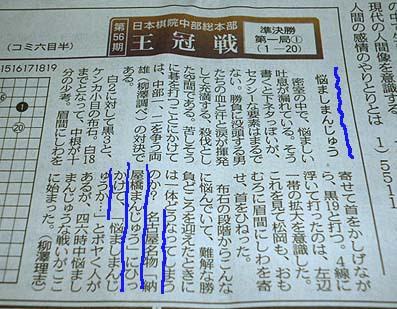 現代の人間像を意識す
人間の感情のやりとりとは
日本棋院中部総本部
第56期
王冠戦
準決勝
第一局①
(1―20)
(コミ六目半)
1516171819
悩ましまんじゅう
密室の中で、悩ましい
吐息が漏れている。そう
書くと下ネタっぽいが、
セクシーな要素はまるで
ない。勝負に没頭する男
たちの血と汗と涙が発揮
して充満する、殺伐とし
た空間である。苦しそう
に碁を打つことにかけて
は、中部一、二を争う両
雄(柳澤調べ)の対決で
ある。
白2に対して黒3と
ケンカ目の布石。白18
となって、中根が十
分の少考。眉間にしわを
寄せて首をかしげなが
ら、黒19と打つ。4線に
浮いて打ったのは、左辺
一帯の拡大を意識した。
これを見て松岡も、おも
むろに眉間にしわを寄
せ、首をひねった。
布石の段階からこんな
に悩んでいて、難解な勝
負どころを迎えたときに
は一体どうなってしまう
のか? 名古屋名物「納
屋橋まんじゅう」にひっ
かけて、「悩ましまんじ
ゅうか」とボヤく人が
あるが、四六時中悩まし
まんじゅうな戦いがここ
に始まった。(柳澤理志)